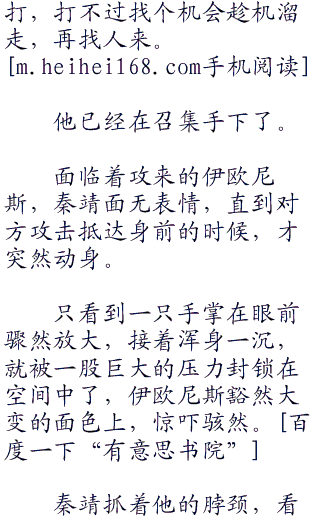 打，打不过找个机会趁机溜
走，再找人来。
[m.heihei168.com手机阅读]
他已经在召集手下了。
面临着攻来的伊欧尼
斯，秦靖面无表情，直到对
方攻击抵达身前的时候，才
突然动身。
只看到一只手掌在眼前
骤然放大，接着浑身一沉，
就被一股巨大的压力封锁在
空间中了，伊欧尼斯豁然大
变的面色上，惊吓骇然。[百
度一下“有意思书院”]
秦靖抓着他的脖颈，看